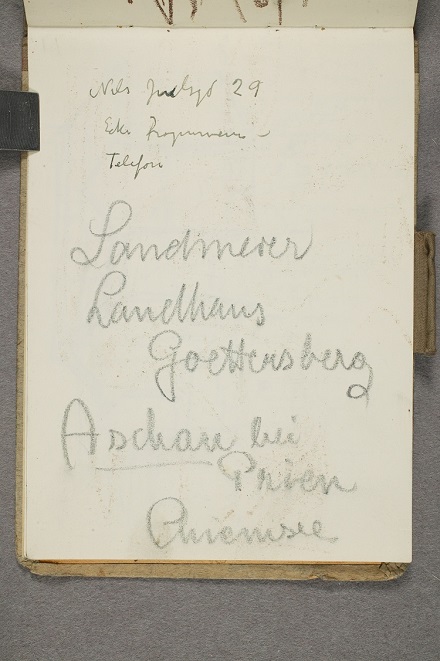 Nils 29
Ecke
Telefon
Landmeier
Landhaus
Goettersberg
Aschau bei
Prien
Chiemsee